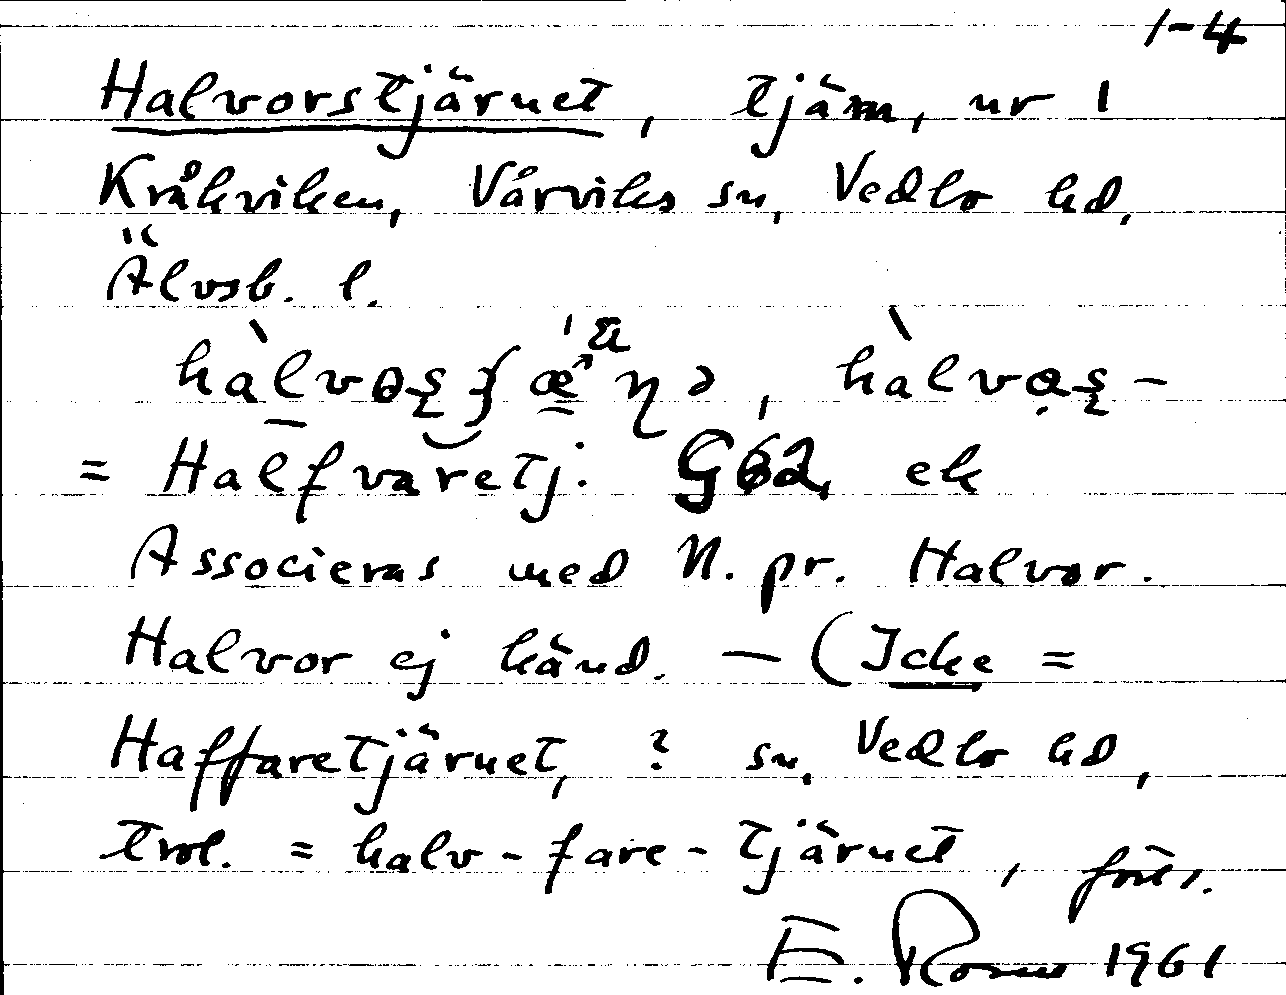 1-4
Halvorstjärnet, tjärn, nr 1
Kråkviken, Vårviks sn, Vedbo hd,
Älvsb. l.
= Halfvaretj. G62, ek
Associeras med N. pr. Halvor.
Halvor ej känd. — (Icke =
Haffaretjärnet, ? sn, Vedbo hd,
trol. = halv-fare-tjärnet, förs.
E. 1961